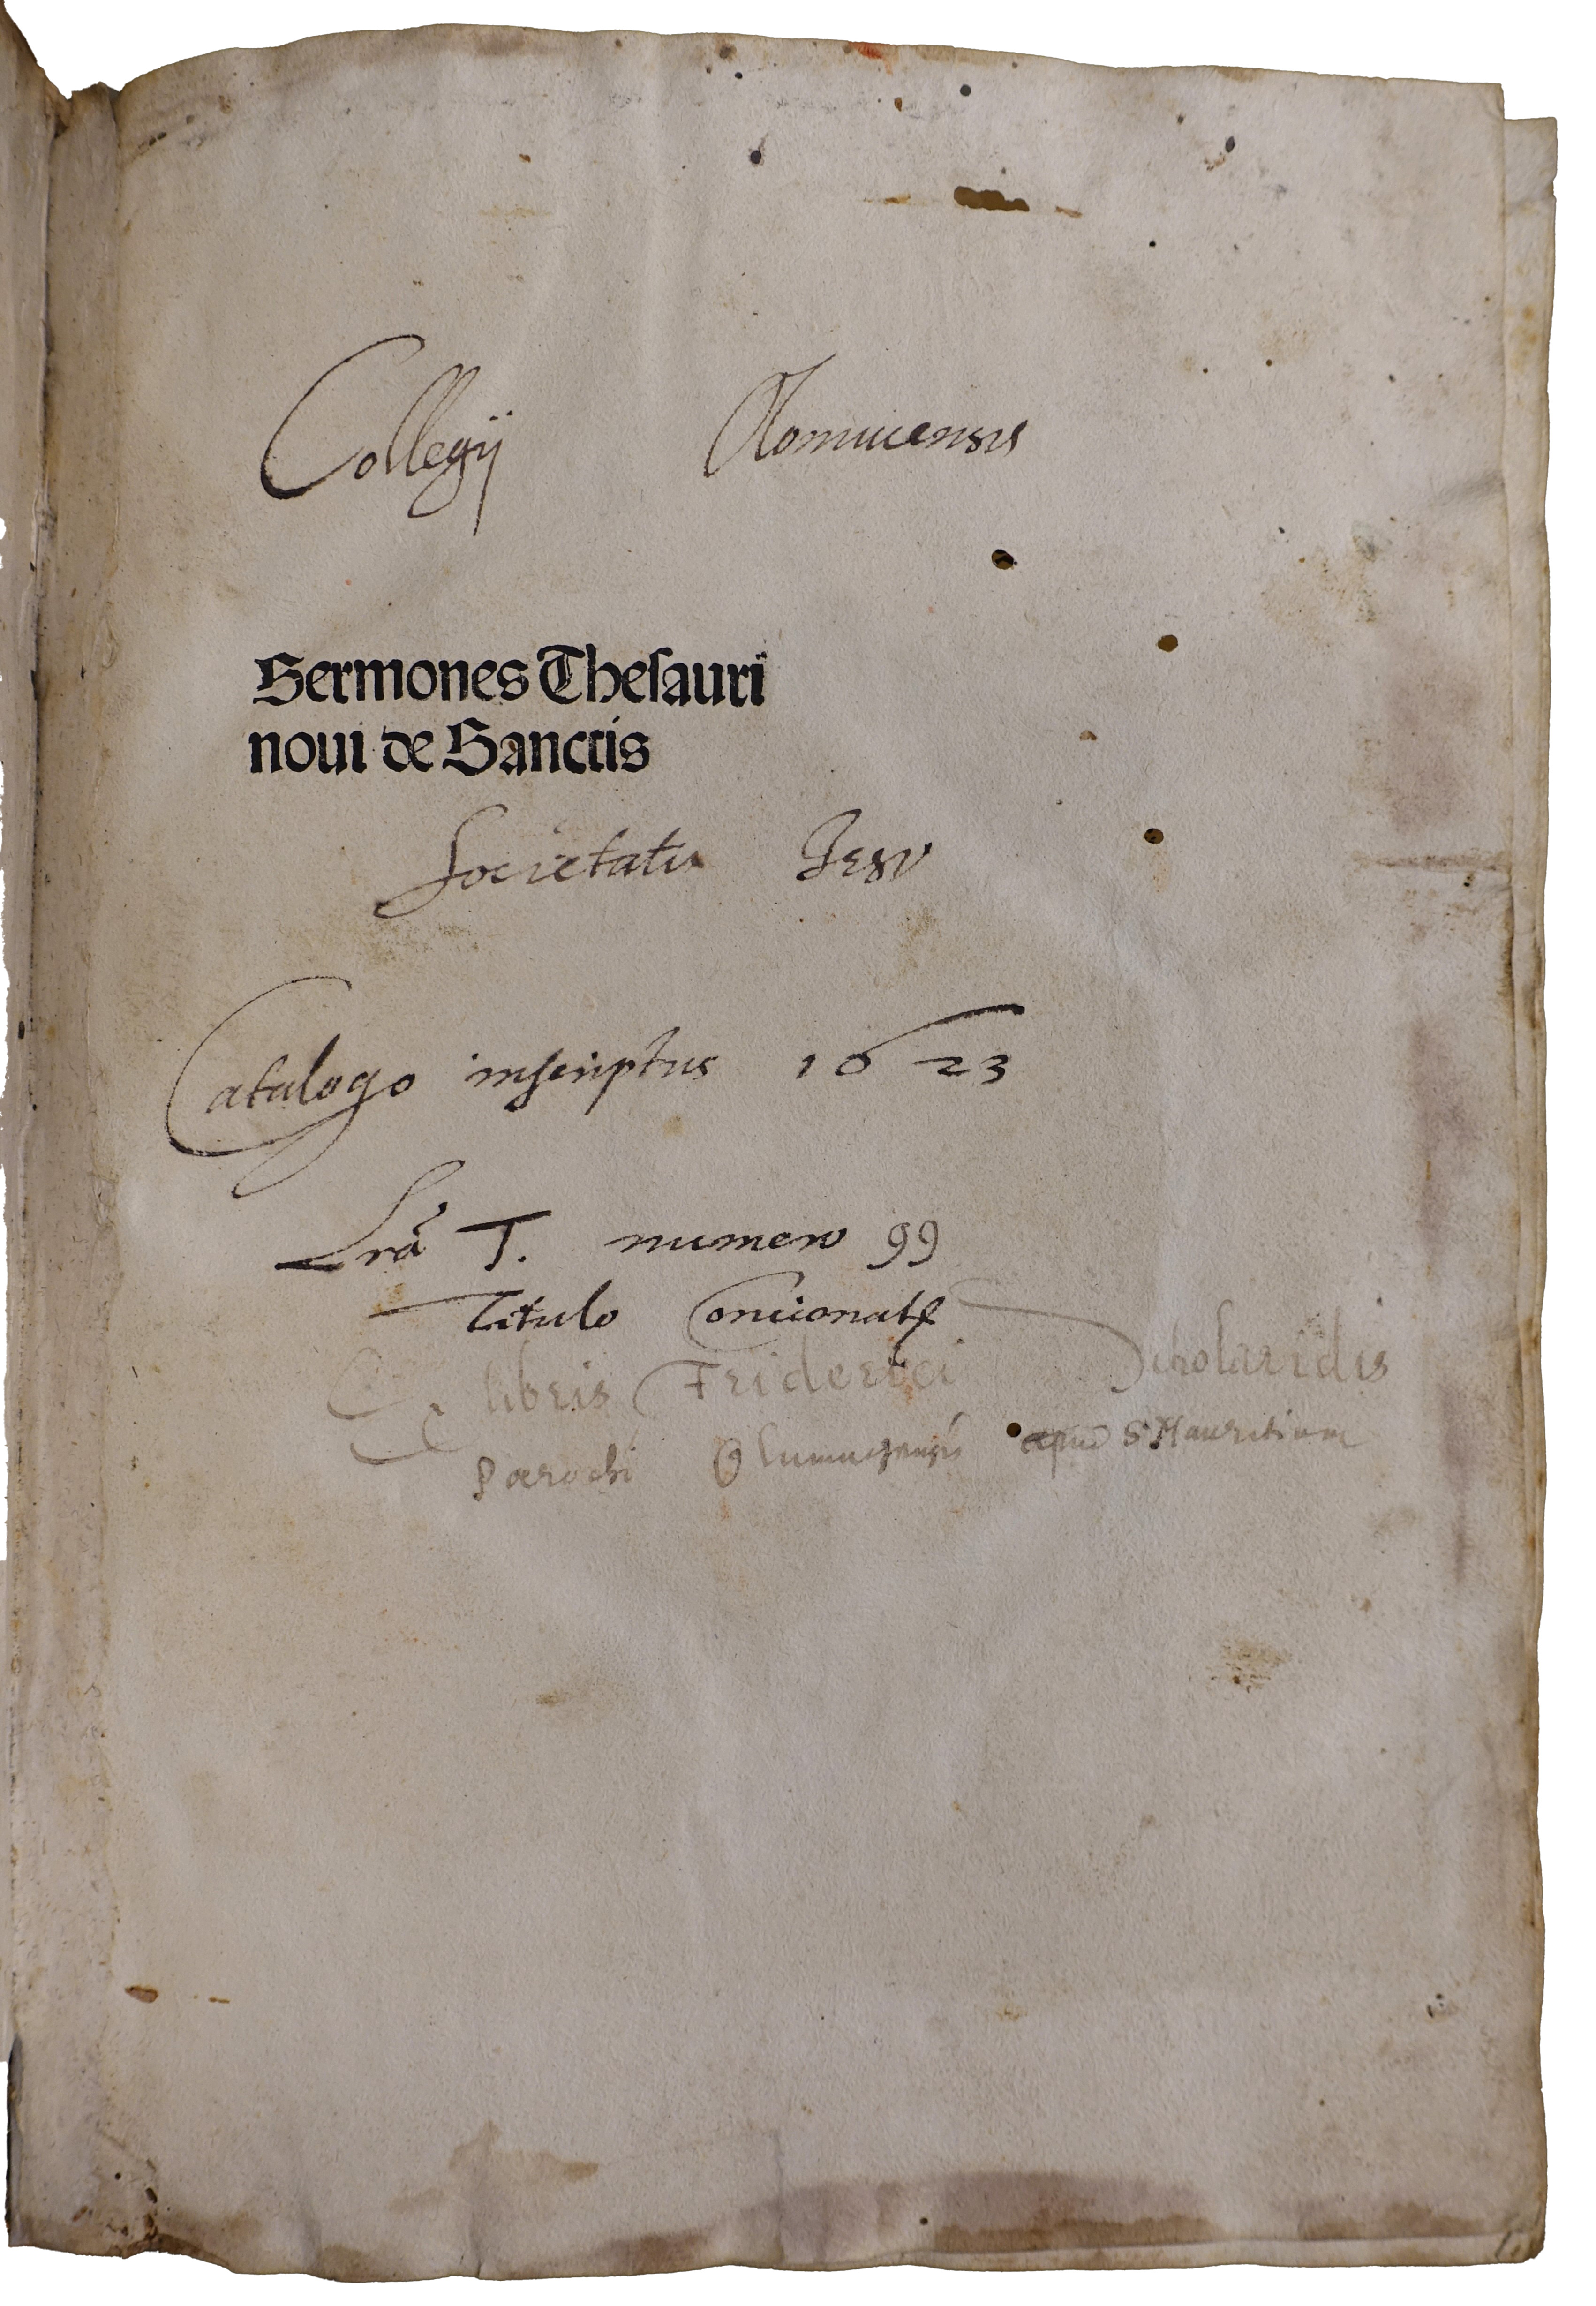 Collegij Olomucensis
Sermones Theſauri
noui de Sanctis
Societatis Jesv
Catalogo inscriptus 1623
Lrã T. numero 99
Titulo Concionat
Ex libris Friderici Scholaridis
Parochi apud S Mauritium